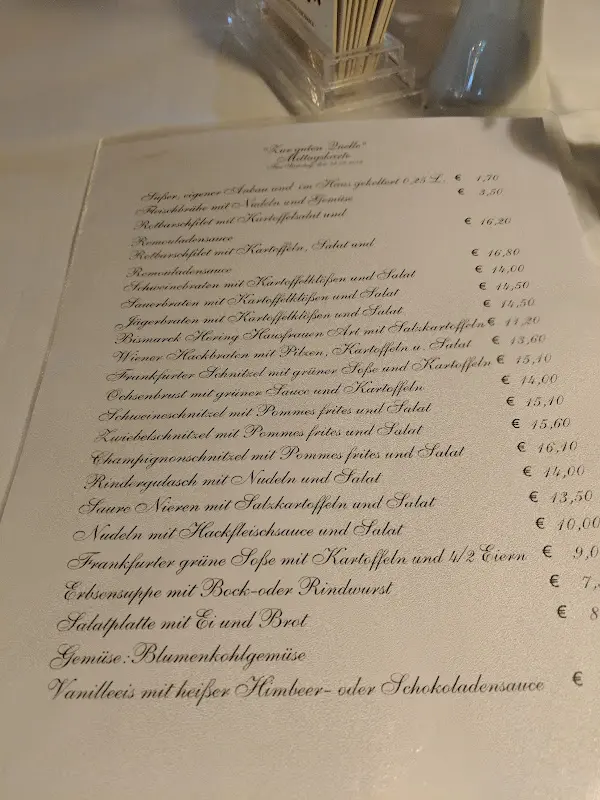 "Zur guten Quelle"
Mittagskarte
Süßer, eigener Anbau und im Haus gekeltert 0,25 L. € 1,70
Fleischbrühe mit Nudeln und Gemüse € 3,50
Rotbarschfilet mit Kartoffelsalat und
Remouladensauce € 16,20
Rotbarschfilet mit Kartoffeln, Salat und
Remouladensauce € 16,80
Schweinebraten mit Kartoffelklößen und Salat € 14,00
Sauerbraten mit Kartoffelklößen und Salat € 14,50
Jägerbraten mit Kartoffelklößen und Salat € 14,50
Bismarck Hering Hausfrauen Art mit Salzkartoffeln € 11,20
Wiener Hackbraten mit Pilzen, Kartoffeln u. Salat € 13,60
Frankfurter Schnitzel mit grüner Soße und Kartoffeln € 15,10
Ochsenbrust mit grüner Sauce und Kartoffeln € 14,00
Schweineschnitzel mit Pommes frites und Salat € 15,10
Zwiebelschnitzel mit Pommes frites und Salat € 15,60
Champignonschnitzel mit Pommes frites und Salat € 16,10
Rindergulasch mit Nudeln und Salat € 14,00
Saure Nieren mit Salzkartoffeln und Salat € 13,50
Nudeln mit Hackfleischsauce und Salat € 10,00
Frankfurter grüne Soße mit Kartoffeln und 4/2 Eiern € 9,0
Erbsensuppe mit Bock-oder Rindwurst € 7,
Salatplatte mit Ei und Brot € 8
Gemüse: Blumenkohlgemüse
Vanilleeis mit heißer Himbeer- oder Schokoladensauce €